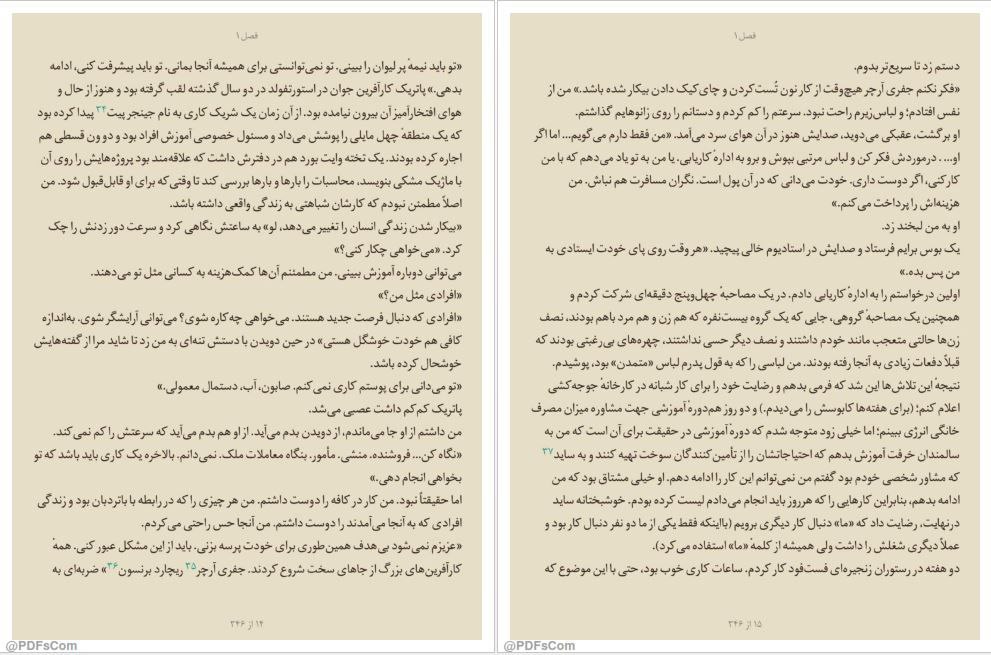 فصل ۱
«تو باید نیمهٔ پر لیوان را ببینی. تو نمی‌توانستی برای همیشه آنجا بمانی. تو باید پیشرفت کنی، ادامه
بدهی.» پاتریک کارآفرین جوان در استورتفولد در دو سال گذشته لقب گرفته بود و هنوز از حال و
هوای افتخارآمیز آن بیرون نیامده بود. از آن زمان یک شریک کاری به نام جینجر پیت۳۴ پیدا کرده بود
که یک منطقهٔ چهل مایلی را پوشش می‌داد و مسئول خصوصی آموزش افراد بود و دو ون قسطی هم
اجاره کرده بودند. یک تخته وایت بورد هم در دفترش داشت که علاقه‌مند بود پروژه‌هایش را روی آن
با ماژیک مشکی بنویسد، محاسبات را بارها و بارها بررسی کند تا وقتی‌که برای او قابل‌قبول شود. من
اصلاً مطمئن نبودم که کارشان شباهتی به زندگی واقعی داشته باشد.
«بیکار شدن زندگی انسان را تغییر می‌دهد، لو» به ساعتش نگاهی کرد و سرعت دور زدنش را چک
کرد. «می‌خواهی چکار کنی؟»
می‌توانی دوباره آموزش ببینی. من مطمئنم آن‌ها کمک‌هزینه به کسانی مثل تو می‌دهند.
«افرادی مثل من؟»
«افرادی که دنبال فرصت جدید هستند. می‌خواهی چه‌کاره شوی؟ می‌توانی آرایشگر شوی. به‌اندازه
کافی هم خودت خوشگل هستی» در حین دویدن با دستش تنه‌ای به من زد تا شاید مرا از گفته‌هایش
خوشحال کرده باشد.
«تو می‌دانی برای پوستم کاری نمی‌کنم. صابون، آب، دستمال معمولی.»
پاتریک کم‌کم داشت عصبی می‌شد.
من داشتم از او جا می‌ماندم، از دویدن بدم می‌آید. از او هم بدم می‌آید که سرعتش را کم نمی‌کند.
«نگاه کن... فروشنده. منشی. مأمور. بنگاه معاملات ملک. نمی‌دانم. بالاخره یک کاری باید باشد که تو
بخواهی انجام دهی.»
اما حقیقتاً نبود. من کار در کافه را دوست داشتم. من هر چیزی را که در رابطه با باتردبان بود و زندگی
افرادی که به آنجا می‌آمدند را دوست داشتم. من آنجا حس راحتی می‌کردم.
«عزیزم نمی‌شود بی‌هدف همین‌طوری برای خودت پرسه بزنی. باید از این مشکل عبور کنی. همهٔ
کارآفرین‌های بزرگ از جاهای سخت شروع کردند. جفری آرچر۳۵ ریچارد برنسون۳۶» ضربه‌ای به
۱۴ از ۳۴۶
@PDFsCom
فصل ۱
دستم زد تا سریع‌تر بدوم.
«فکر نکنم جفری آرچر هیچ‌وقت از کار نون تُست‌کردن و چای‌کیک دادن بیکار شده باشد.» من از
نفس افتادم؛ و لباس‌زیرم راحت نبود. سرعتم را کم کردم و دستانم را روی زانوهایم گذاشتم.
او برگشت، عقبکی می‌دوید، صدایش هنوز در آن هوای سرد می‌آمد. «من فقط دارم می‌گویم... اما اگر
او... . درموردش فکر کن و لباس مرتبی بپوش و برو به ادارهٔ کاریابی. یا من به تو یاد می‌دهم که با من
کارکنی، اگر دوست داری. خودت می‌دانی که در آن پول است. نگران مسافرت هم نباش. من
هزینه‌اش را پرداخت می‌کنم.»
او به من لبخند زد.
یک بوس برایم فرستاد و صدایش در استادیوم خالی پیچید. «هر وقت روی پای خودت ایستادی به
من پس بده.»
اولین درخواستم را به ادارهٔ کاریابی دادم. در یک مصاحبهٔ چهل‌وپنج دقیقه‌ای شرکت کردم و
همچنین یک مصاحبهٔ گروهی، جایی که یک گروه بیست‌نفره که هم زن و هم مرد باهم بودند، نصف
زن‌ها حالتی متعجب مانند خودم داشتند و نصف دیگر حسی نداشتند، چهره‌های بی‌رغبتی بودند که
قبلاً دفعات زیادی به آنجا رفته بودند. من لباسی را که به قول پدرم لباس «متمدن» بود، پوشیدم.
نتیجهٔ این تلاش‌ها این شد که فرمی بدهم و رضایت خود را برای کار شبانه در کارخانهٔ جوجه‌کشی
اعلام کنم؛ (برای هفته‌ها کابوسش را می‌دیدم.) و دو روز هم‌دورهٔ آموزشی جهت مشاوره میزان مصرف
خانگی انرژی ببینم؛ اما خیلی زود متوجه شدم که دورهٔ آموزشی در حقیقت برای آن است که من به
سالمندان خرفت آموزش بدهم که احتیاجاتشان را از تأمین‌کنندگان سوخت تهیه کنند و به ساید۳۷
که مشاور شخصی خودم بود گفتم من نمی‌توانم این کار را ادامه دهم. او خیلی مشتاق بود که من
ادامه بدهم، بنابراین کارهایی را که هرروز باید انجام می‌دادم لیست کرده بودم. خوشبختانه ساید
درنهایت، رضایت داد که «ما» دنبال کار دیگری برویم (بااینکه فقط یکی از ما دو نفر دنبال کار بود و
عملاً دیگری شغلش را داشت ولی همیشه از کلمهٔ «ما» استفاده می‌کرد).
دو هفته در رستوران زنجیره‌ای فست‌فود کار کردم. ساعات کاری خوب بود، حتی با این موضوع که
۱۵ از ۳۴۶
@PDFsCom